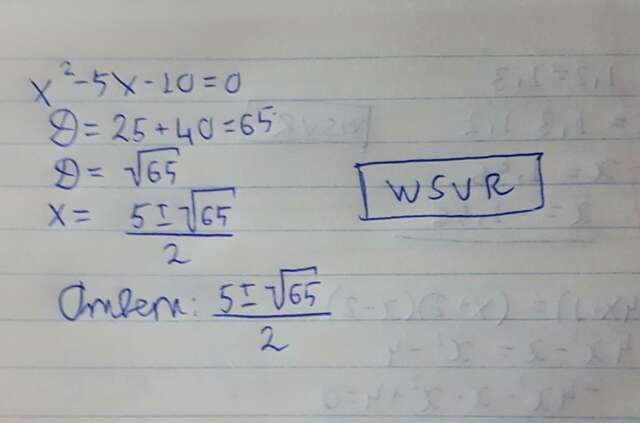 x²-5x-10=0
D=25+40=65
D=√65
x= (5±√65)/2
WSVR
Ответ: (5±√65)/2